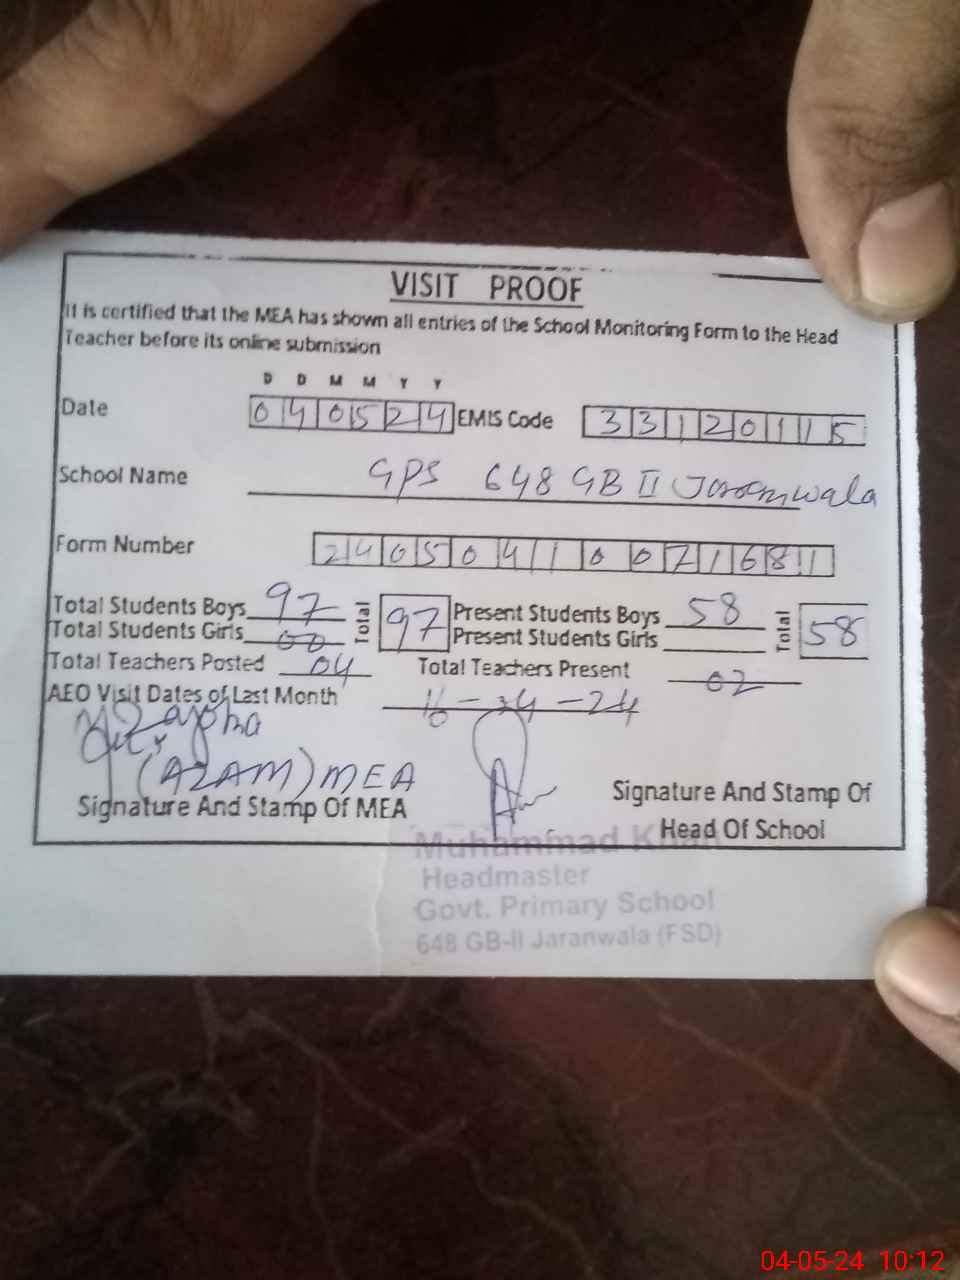 VISIT PROOF
It is certified that the MEA has shown all entries of the School Monitoring Form to the Head
Teacher before its online submission
D D M M Y Y
Date 040524 EMIS Code 33120115
School Name GPS 648 GB II Jaranwala
Form Number 240504100071681
Total Students Boys 97 Total 97 Present Students Boys 58 Total 58
Total Students Girls 00 Present Students Girls
Total Teachers Posted 04 Total Teachers Present 02
AEO Visit Dates of Last Month 16-04-24
(AZAM) MEA
Signature And Stamp Of MEA Signature And Stamp Of
Head Of School
Muhammad Khan
Headmaster
Govt. Primary School
648 GB-II Jaranwala (FSD)
04-05-24 10:12